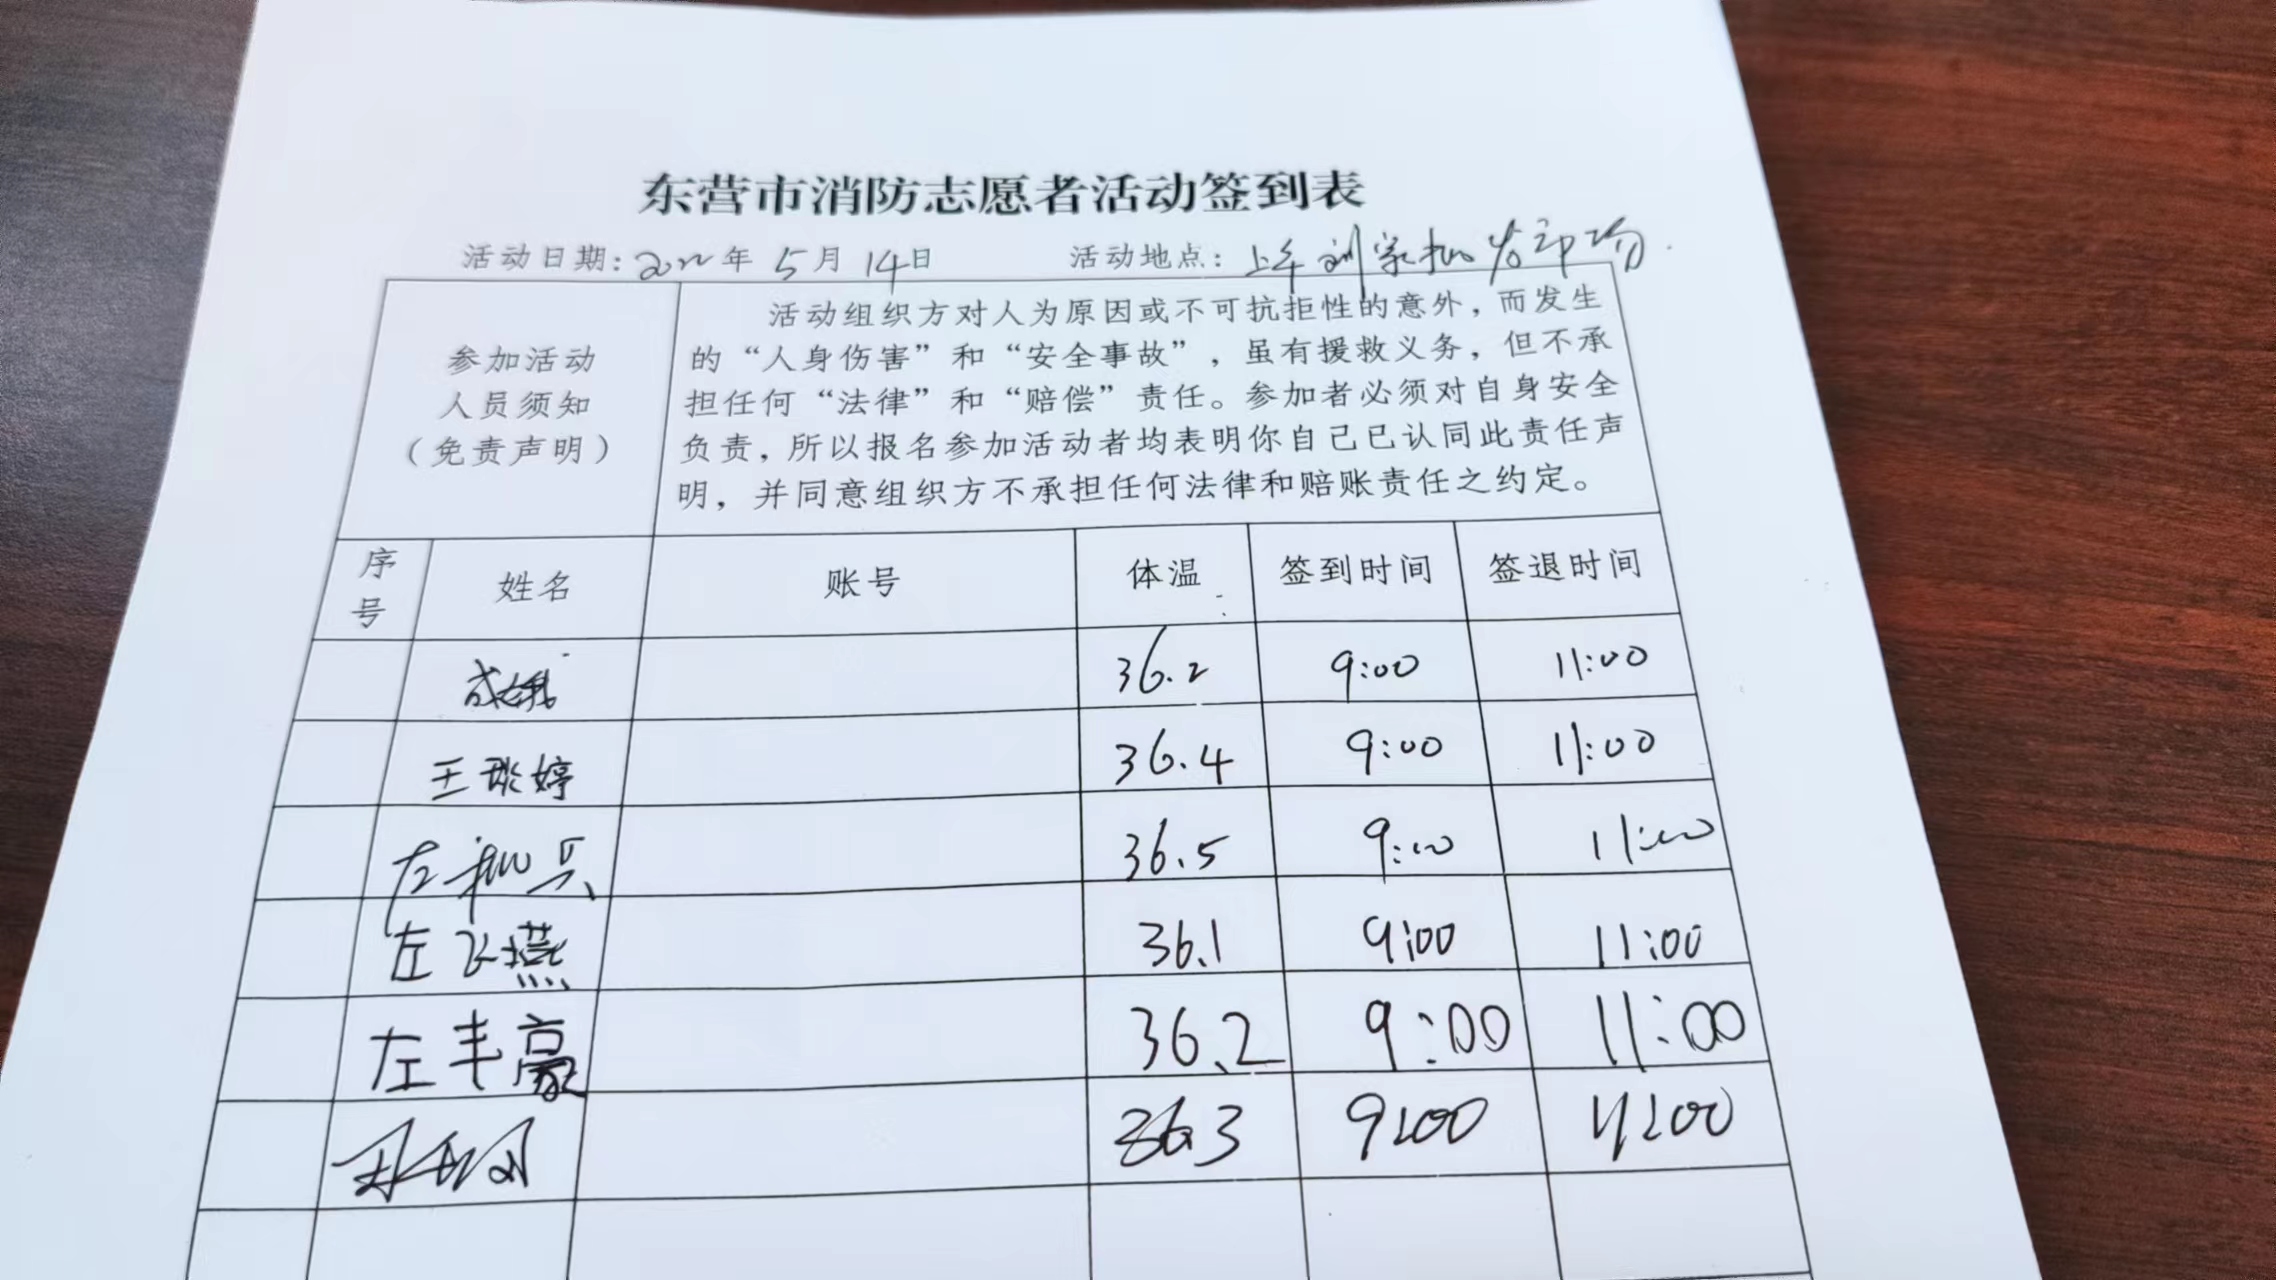 东营市消防志愿者活动签到表
活动日期:2022年 5月 14日 活动地点:上午刘家批发市场
参加活动
人员须知
(免责声明)
活动组织方对人为原因或不可抗拒性的意外,而发生
的“人身伤害”和“安全事故”,虽有援救义务,但不承
担任何“法律”和“赔偿”责任。参加者必须对自身安全
负责,所以报名参加活动者均表明你自己已认同此责任声
明,并同意组织方不承担任何法律和赔账责任之约定。
序号 姓名 账号 体温 签到时间 签退时间
36.2 9:00 11:00
王 婷 36.4 9:00 11:00
左 36.5 9:00 11:00
左飞燕 36.1 9:00 11:00
左丰豪 36.2 9:00 11:00
36.3 9:00 11:00